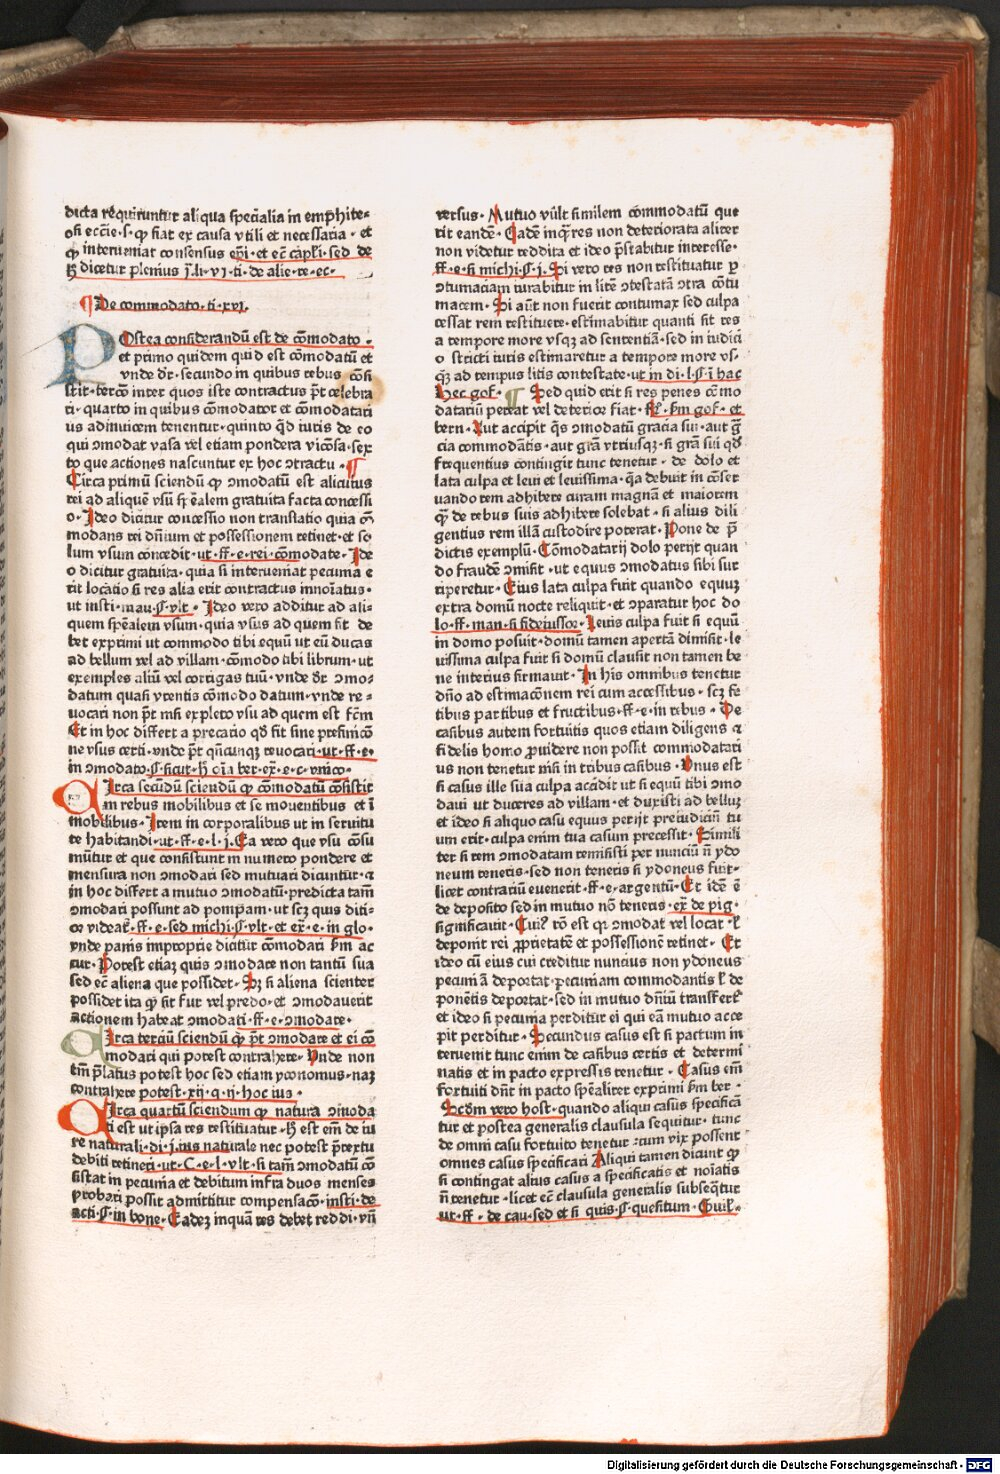 dicta requiruntur aliqua specialia in emphiteo
si ecc̄ie·s· ꝙ fiat ex causa vtili et necessaria · et
ꝙ interueniat consensus ep̄i·et ec̄ cap̄li·sed de
dicetur plenius j̄·li·vj·ti·de alie·re·ec·
¶De commodato·ti·xvj·
POstea considerandū est de cōmodato·
et primo quidem quid est cōmodatū et
vnde dr̄·secundo in quibus rebus cōsi
stit·tercō inter quos iste contractus p̄t celebra
ri·quarto in quibus cōmodator et cōmodatari
us adinuicem tenentur·quinto qd iuris de eo
qui ꝯmodat vasa vel etiam pondera vicōsa·sex
to que actiones nascuntur ex hoc ꝯtractu·¶
Circa primū sciendū ꝙ ꝯmodatū est alicuius
rei ad aliquē vsū sp̄ealem gratuita facta concessi
o·Ideo dicitur concessio non translatio quia cō
modans rei dn̄ium et possessionem retinet·et so
lum vsum concedit·ut·ff·e·rei·cōmodate·Ide
o dicitur gratuita·quia si interueniat pecunia e
rit locatio si res alia erit contractus innoīatus·
ut insti·mau·§·vlt·Ideo vero additur ad ali
quem sp̄ealem vsum·quia vsus ad quem fit de
bet exprimi ut commodo tibi equū ut eū ducas
ad bellum vel ad villam·cōmodo tibi librum·ut
exemples aliū vel corrigas tuū·vnde dr̄ ꝯmo
datum quasi vtentis cōmodo datum·vnde re
uocari non p̄t nisi expleto vsu ad quem est fc̄m
Et in hoc differt a precario qd fit sine prefinicō
ne vsus certi·vnde p̄t qn̄cunqꝫ reuocari·ut·ff·e·
in ꝯmodato·§·sicut·
CIrca secūdū sciendū ꝙ cōmodatū consistit
in rebus mobilibus et se mouentibus et ī
mobilibus·Item in corporalibus ut in seruitu
te habitandi·ut·ff·e·l·j·Ea vero que vsu cōsu
mūtur et que consistunt in numero pondere et
mensura non ꝯmodari sed mutuari dicuntur·⁊
in hoc differt a mutuo ꝯmodatū·predicta tam̄
ꝯmodari possunt ad pompam·ut scꝫ quis diti
or videat᷑·ff·e·sed michi·§·vlt·et ex̄·e·in glo·
vnde panis improprie dicitur cōmodari s̄m ac
cur·Potest etiaꝫ quis ꝯmodare non tantū sua
sed ec̄ aliena que possidet·Sꝫ si aliena scienter
possidet ita ꝙ sit fur vel predo·et ꝯmodauerit
actionem habeat ꝯmodati·ff·e·ꝯmodare·
CIrca terciū sciendū ꝙ p̄t ꝯmodare et ei cō
modari qui potest contrahere·Vnde non
tm̄ p̄latus potest hoc sed etiam yconomus·naꝫ
contrahere potest·xij·q·ij·hoc ius·
CIrca quartū sciendum ꝙ natura ꝯmoda
ti est ut ipsa res restituatur·h̄ est em̄ de iu
re naturali·di·j·ius naturale nec potest p̄textu
debiti retineri·ut·C·e·l·vlt·si tam̄ ꝯmodatū cō
sistat in pecunia et debitum infra duos menses
probari possit admittitur compensacō·insti·de
acti·§·in bone·Eadeꝫ inquā res debet reddi·vn̄
versus·Mutuo vult similem commodatū que
rit eandē·Eadē inqꝫ res non deteriorata aliter
non videtur reddita et ideo p̄stabitur interesse·
ff·e·si michi·§·j·Si vero res non restituatur ꝑ
ꝯtumaciam iurabitur in litē ꝯtestatā ꝯtra cōtu
macem·Si aūt non fuerit contumax sed culpa
cessat rem restituere·estimabitur quanti fit res
a tempore more vsqꝫ ad sententiā·sed in iudici
o stricti iuris estimaretur a tempore more vs
qꝫ ad tempus litis contestate·ut in di·l·§·ī hac
Hec gof·¶ Sed quid erit si res penes cōmo
datariū pereat vel deterior fiat·s̄m gof·et
bern·Aut accipit qs ꝯmodatū gracia sui·aut
cia commodātis·aut gr̄a vtriusqꝫ·si gr̄a sui qd
frequentius contingit tunc tenetur·de dolo et
lata culpa et leui et leuissima·qa debuit in cōser
uando rem adhibere curam magnā et maiorem
q̄ de rebus suis adhibere solebat·si alius dili
gentius rem illā custodire poterat·Pone de p̄
dictis exemplū·Cōmodatarij dolo perijt quan
do fraudē ꝯmisit·ut equus ꝯmodatus sibi sur
riperetur·Eius lata culpa fuit quando equuꝫ
extra domū nocte reliquit·et ꝯparatur hoc do
lo·ff·man·si fideiussor·Leuis culpa fuit si equū
in domo posuit·domū tamen apertā dimisit·le
uissima culpa fuit si domū clausit non tamen be
ne interius firmauit·In his omnibus tenetur
dn̄o ad estimacōnem rei cum accessibus·scꝫ fe
tibus partibus et fructibus·ff·e·in rebus·De
casibus autem fortuitis quos etiam diligens ⁊
fidelis homo prouidere non possit commodatari
us non tenetur nisi in tribus casibus·Vnus est
si casus ille sua culpa accidit ut si equū tibi ꝯmo
daui ut duceres ad villam·et duxisti ad belluꝫ
et ideo si aliquo casu equus perijt preiudiciū tu
um erit·culpa enim tua casum precessit·Simili
ter si rem ꝯmodatam remisisti per nunciū n̄ ydo
neum teneris·sed non teneris si ydoneus fuit·
licet contrariū euenerit·ff·e·argentū·Et idē ē
de deposito sed in mutuo nō teneris·ex̄ de pig·
significauit·Cuiꝰ rō est qꝛ ꝯmodat vel locat ł
deponit rei ꝓprietatē et possessionē retinet·Et
ideo cū eius cui creditur nuncius non ydoneus
pecuniā deportat·pecuniam commodantis ł de
ponētis deportat·sed in mutuo dn̄iū transfert᷑
et ideo si pecunia perditur ei qui eā mutuo acce
pit perditur·Secundus casus est si pactum in
teruenit tunc enim de casibus certis et determi
natis et in pacto expressis tenetur·Casus em̄
fortuiti dn̄t in pacto sp̄ealiter exprimi s̄m ber·
Scd̄m vero host·quando aliqui casus specificā
tur et postea generalis clausula sequitur·tunc
de omni casu fortuito tenetur·cum vix possent
omnes casus specificari·Aliqui tamen dicunt ꝙ
si contingat alius casus a specificatis et noīatis
n̄ tenetur·licet ec̄ clausula generalis subseq̄tur
ut·ff·de cau·sed et si quis·§·quesitum·Guil·
Digitalisierung gefördert durch die Deutsche Forschungsgemeinschaft · DFG